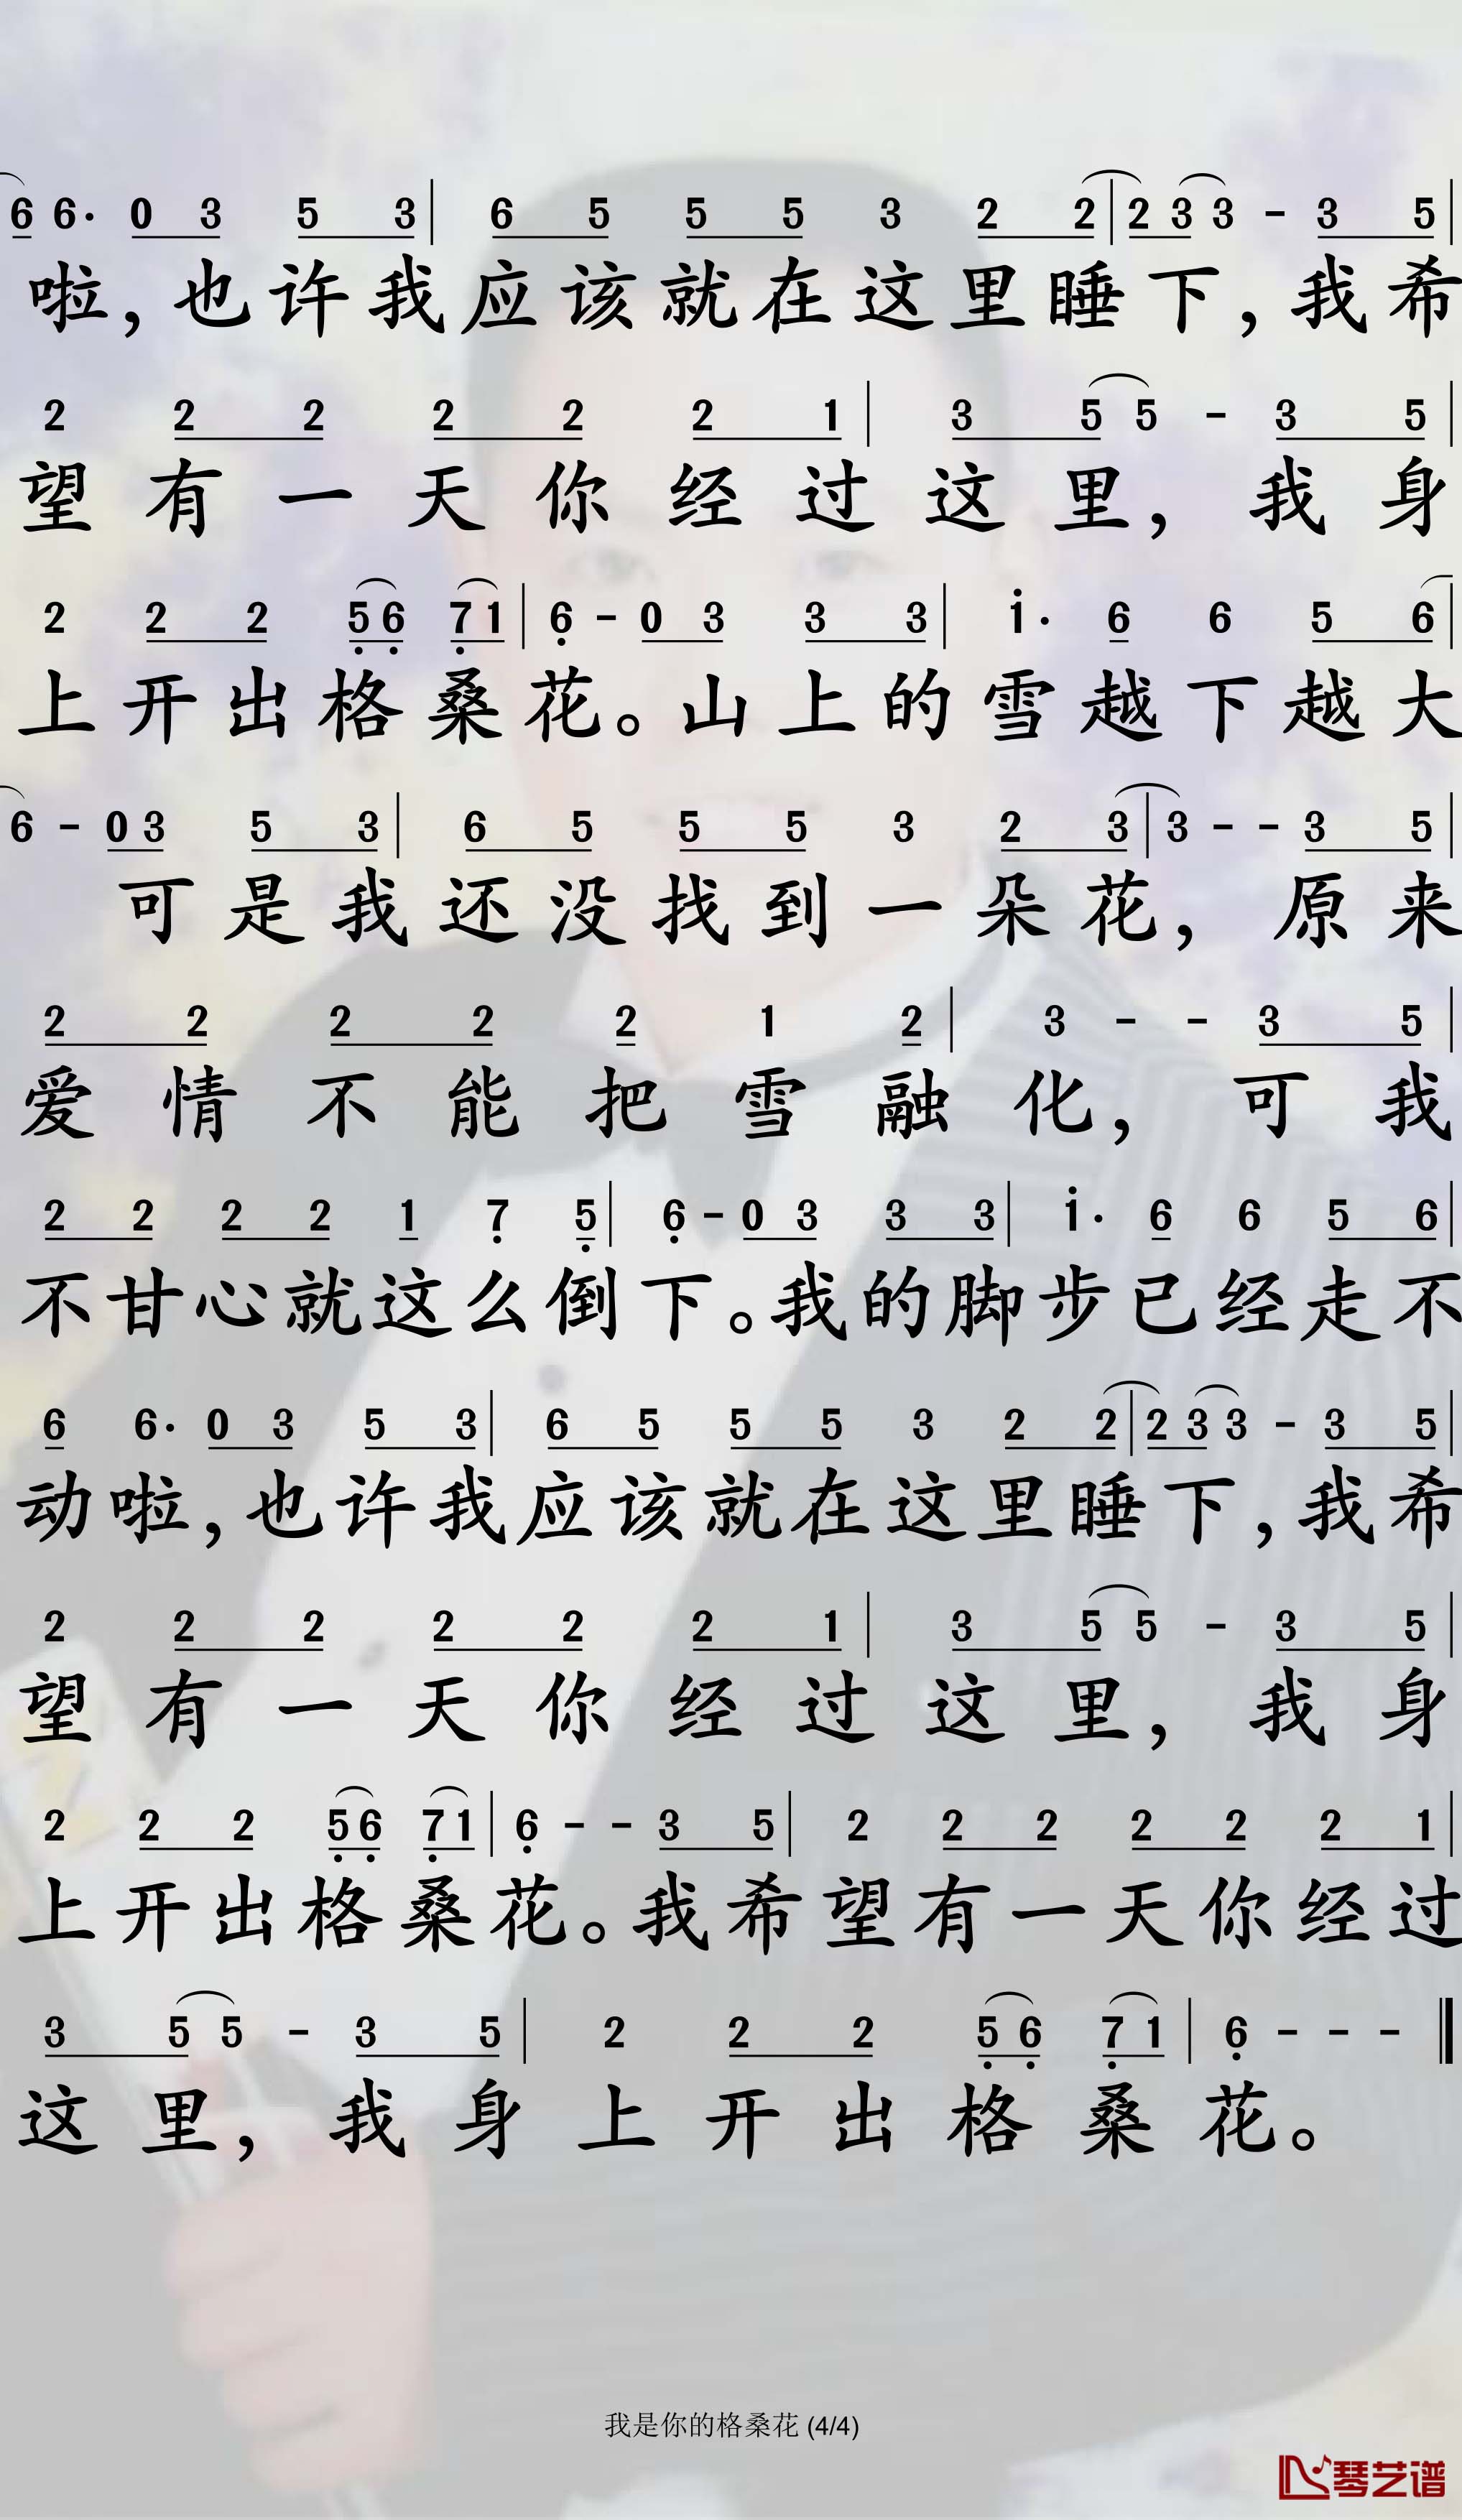 6 6· 0 3 5 3 | 6 5 5 5 3 2 2 | 2 3 3 - 3 5 |
啦,也许我应该就在这里睡下,我希
2 2 2 2 2 2 1 | 3 5 5 - 3 5 |
望有一天你经过这里,我身
2 2 2 5̣ 6̣ 7̣ 1 | 6̣ - 0 3 3 3 | i· 6 6 5 6 |
上开出格桑花。山上的雪越下越大
6 - 0 3 5 3 | 6 5 5 5 3 2 3 | 3 - - 3 5 |
可是我还没找到一朵花,原来
2 2 2 2 2 1 2 | 3 - - 3 5 |
爱情不能把雪融化,可我
2 2 2 2 1 7̣ 5̣ | 6̣ - 0 3 3 3 | i· 6 6 5 6 |
不甘心就这么倒下。我的脚步已经走不
6 6· 0 3 5 3 | 6 5 5 5 3 2 2 | 2 3 3 - 3 5 |
动啦,也许我应该就在这里睡下,我希
2 2 2 2 2 2 1 | 3 5 5 - 3 5 |
望有一天你经过这里,我身
2 2 2 5̣ 6̣ 7̣ 1 | 6̣ - - 3 5 | 2 2 2 2 2 2 1 |
上开出格桑花。我希望有一天你经过
3 5 5 - 3 5 | 2 2 2 5̣ 6̣ 7̣ 1 | 6̣ - - - ‖
这里,我身上开出格桑花。
我是你的格桑花 (4/4)
琴艺谱